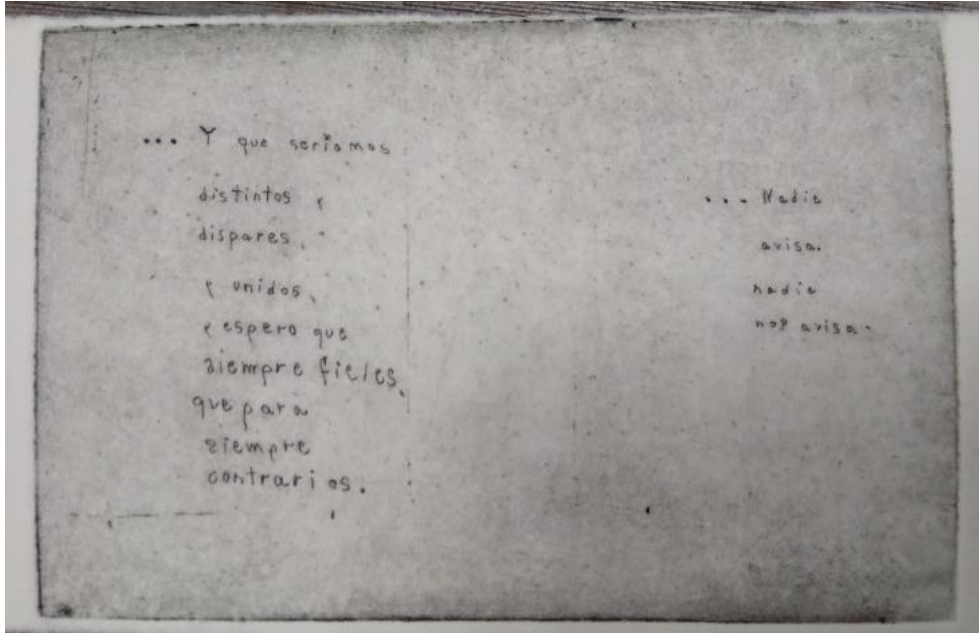 ... Y que seríamos
distintos,
dispares,
y unidos,
y espero que
siempre fieles,
que para
siempre
contrarios.
... Nadie
avisa.
nadie
nos avisa.